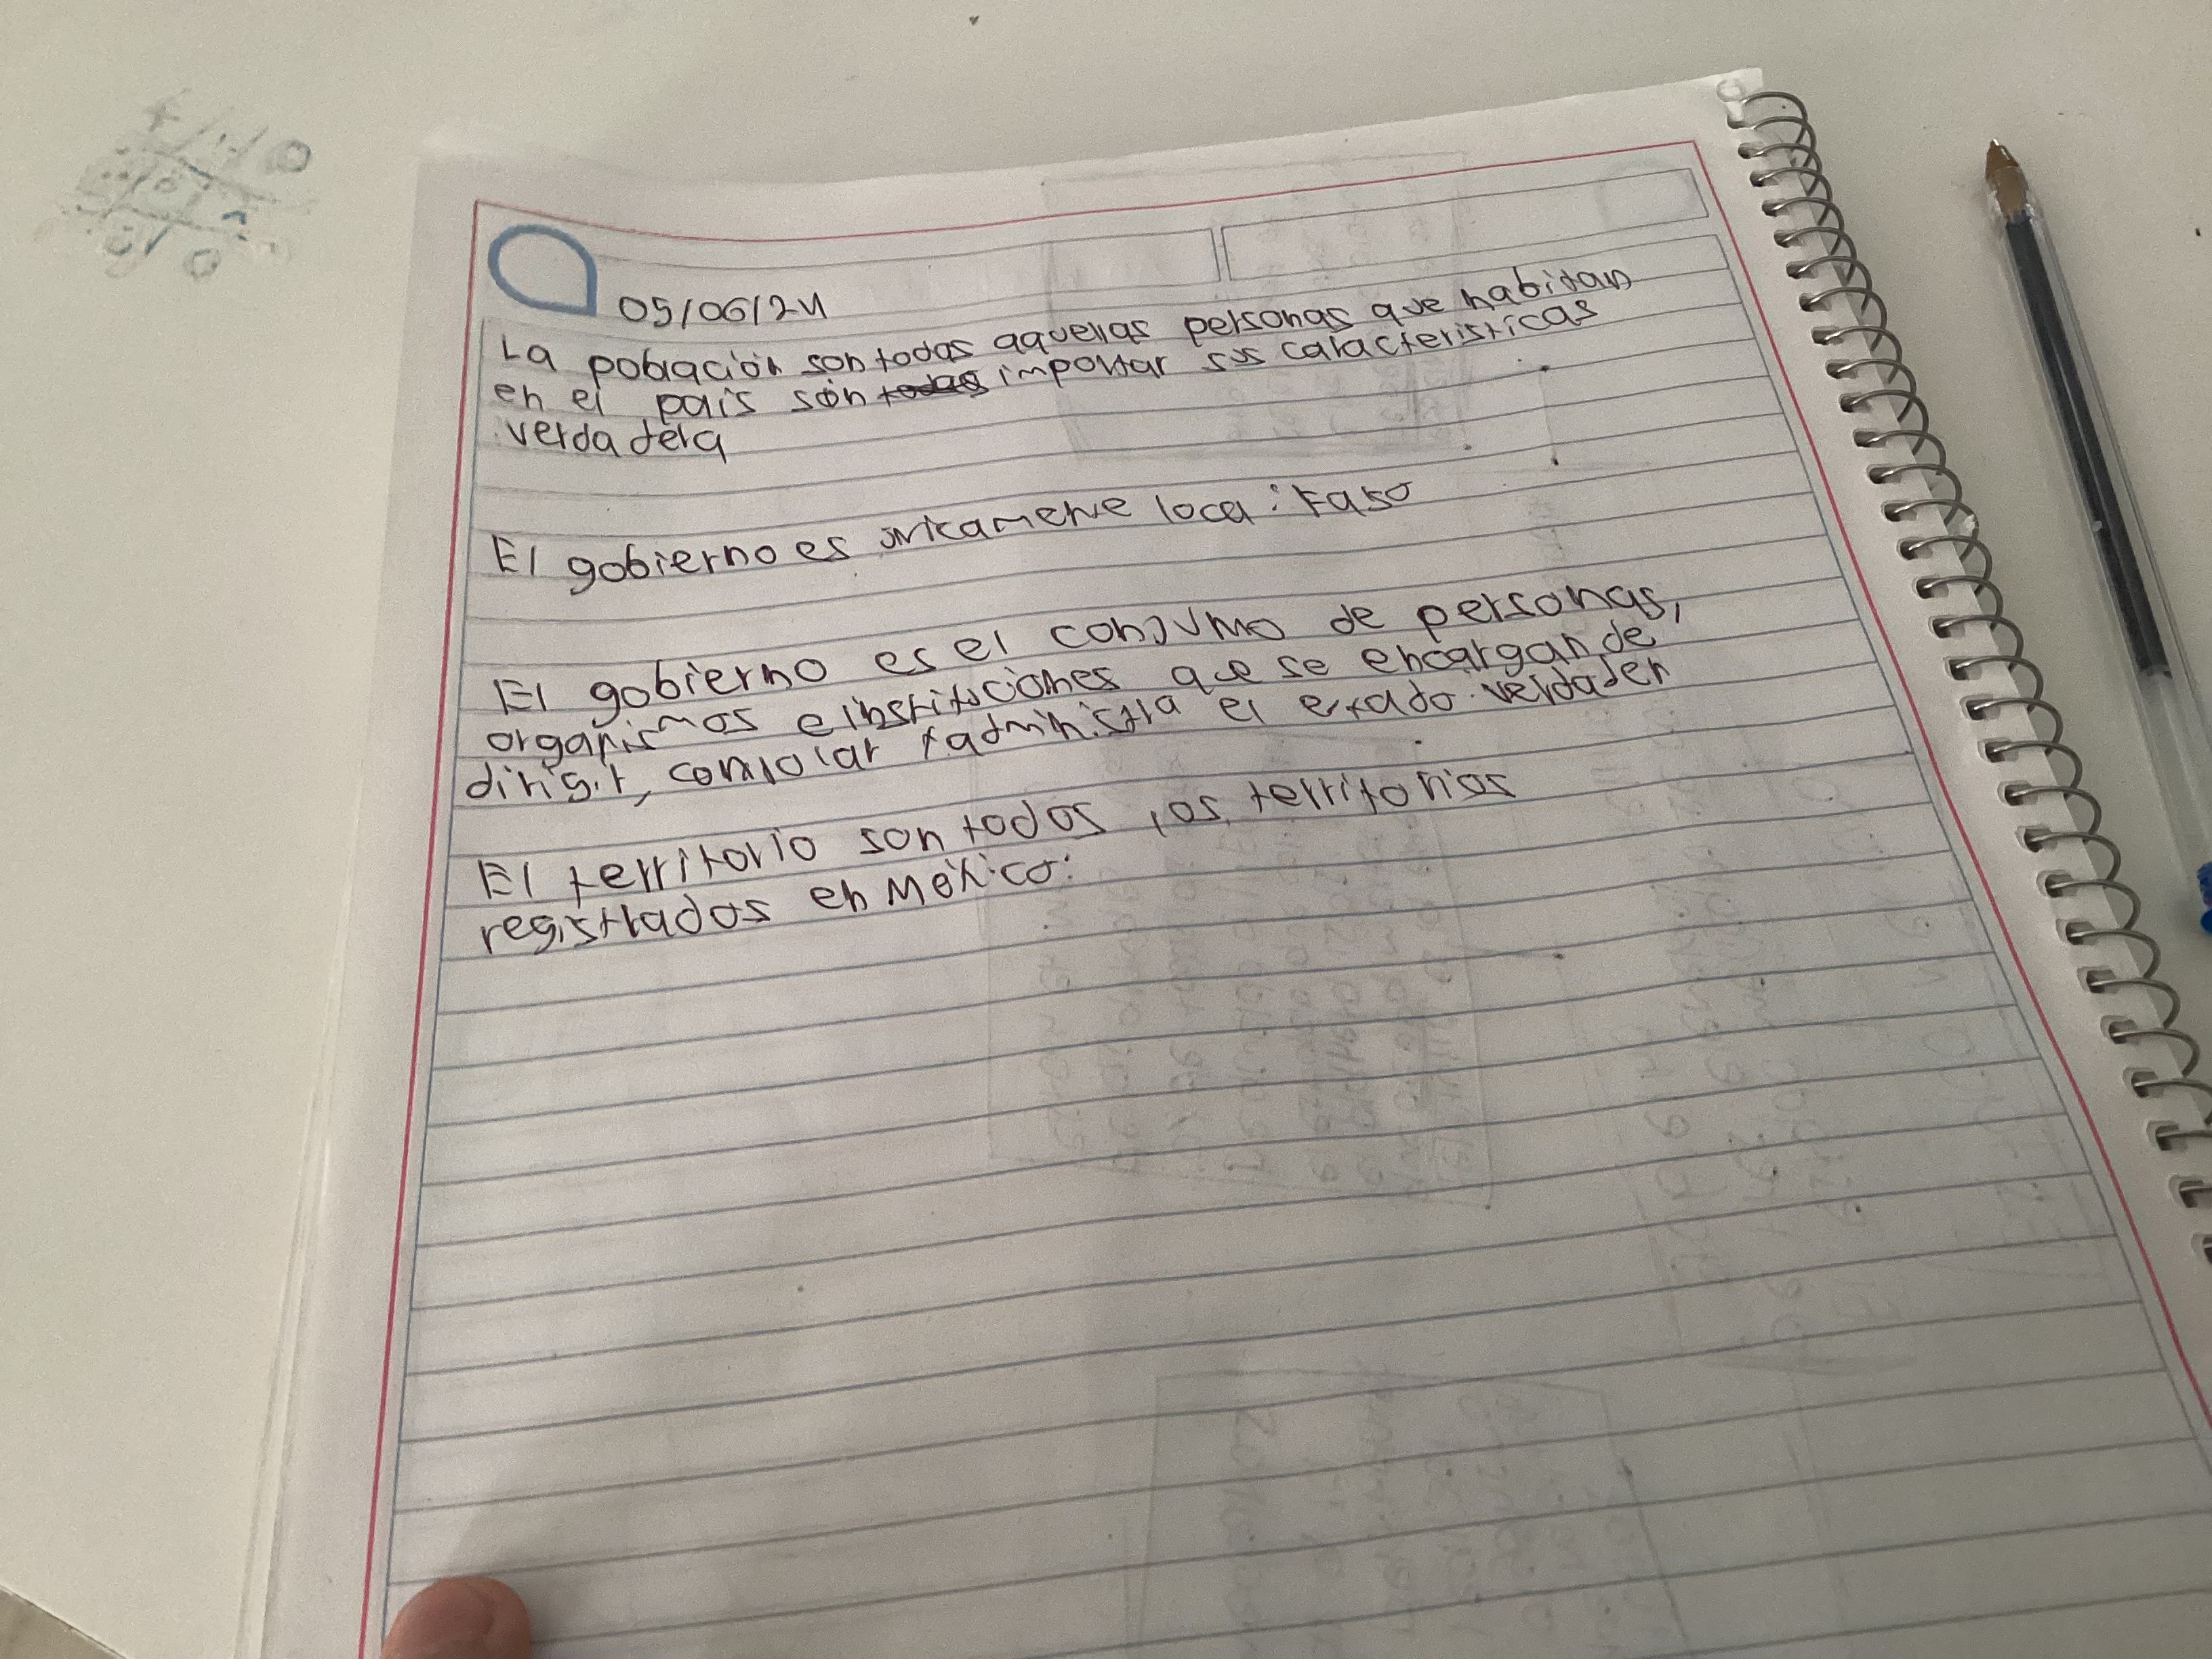 05/06/24
La población son todas aquellas personas que habitan
en el país sin importar sus caracteristicas
verdadera
El gobierno es unicamente local: Falso
El gobierno es el conjunto de personas,
organismos e instituciones que se encargan de
dirigir, controlar administra el estado. verdader
El territorio son todos los territorios
registrados en México: